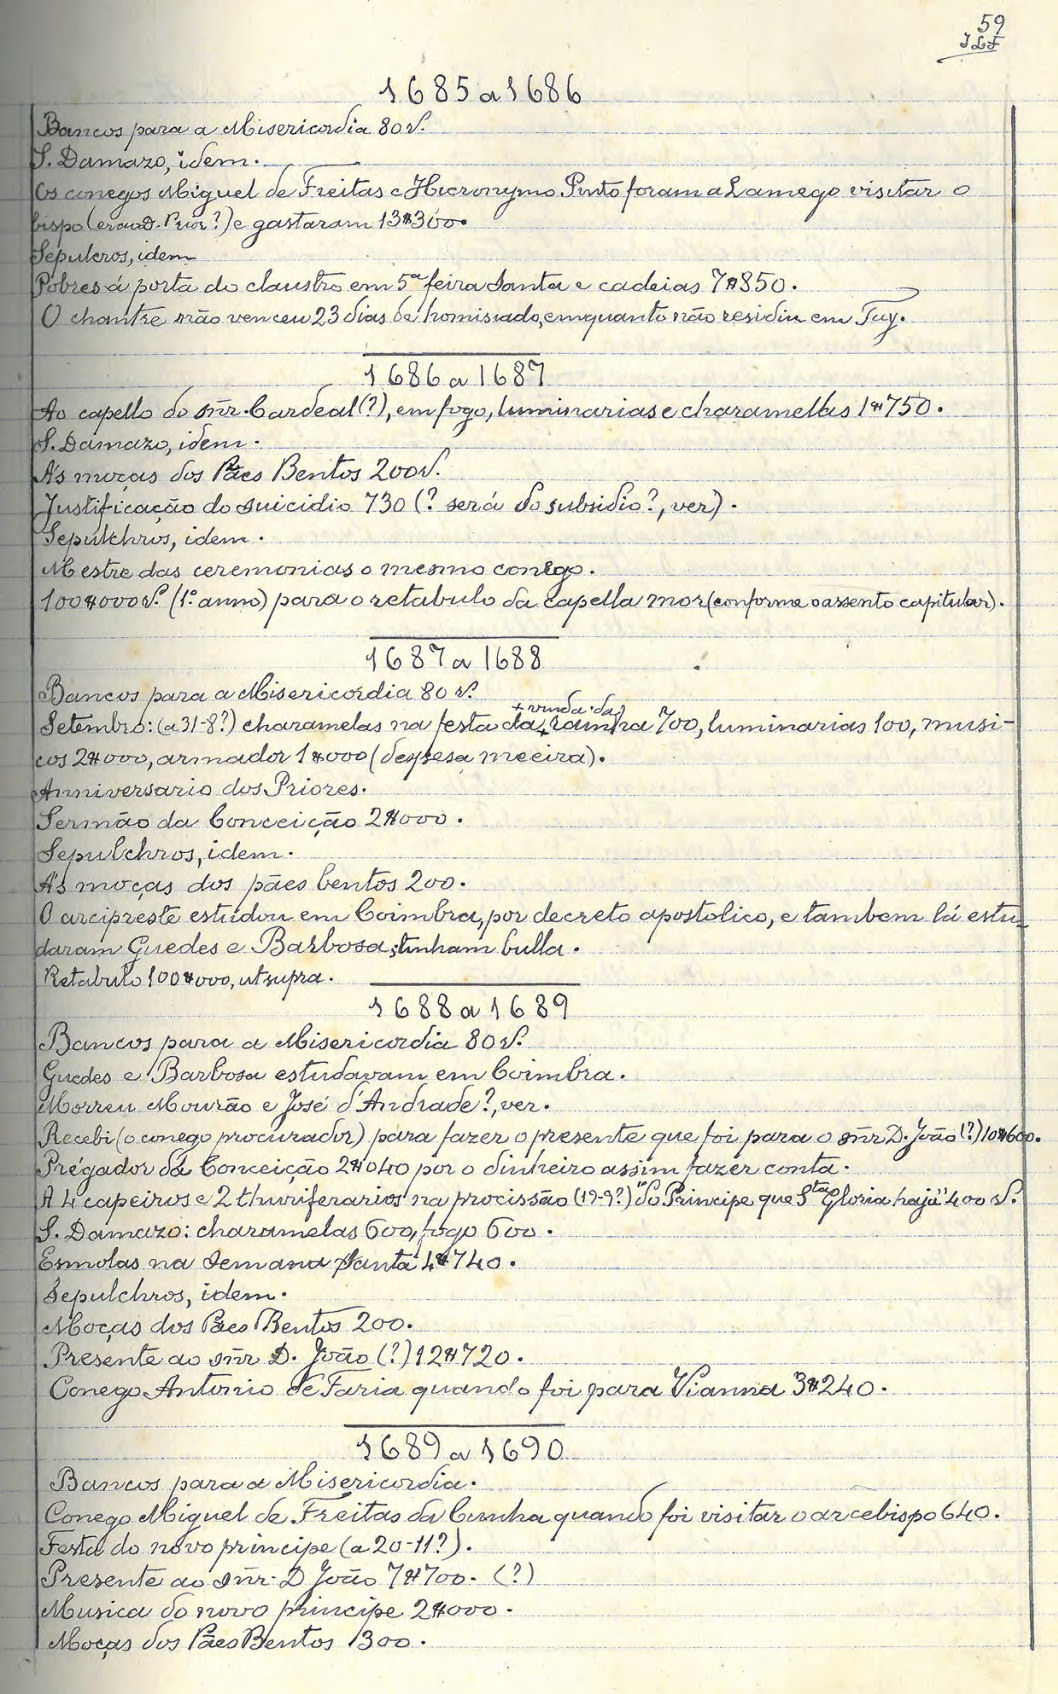 59
JLF
1685 a 1686
Bancos para a Misericordia 80 rs.
S. Damazo, idem.
Os conegos Miguel de Freitas e Hieronymo Pinto foram a Lamego visitar o
bispo (era o D. Prior?) e gastaram 13$300.
Sepulcros, idem
Pobres á porta do claustro em 5ª feira Santa e cadeias 7$850.
O chantre não venceu 23 dias de homisiado, emquanto não residiu em Tuy.
1686 a 1687
Ao capello do Snr. Cardeal (?), em fogo, luminarias e charamellas 1$750.
S. Damazo, idem.
Ás moças dos Pães Bentos 200 rs.
Justificação do suicidio 730 (? será do subsidio?, ver).
Sepulchros, idem.
Mestre das ceremonias o mesmo conego.
100$000 rs. (1.º anno) para o retabulo da capella mor (conforme o assento capitular).
1687 a 1688
Bancos para a Misericordia 80 rs.
+ vinda da
Setembro: (a 31-8?) charamelas na festa da + rainha 700, luminarias 100, musi-
cos 2$000, armador 1$000 (despesa meeira).
Anniversario dos Priores.
Sermão da Conceição 2$000.
Sepulchros, idem.
Ás moças dos pães bentos 200.
O arcipreste estudou em Coimbra, por decreto apostolico, e tambem lá estu-
daram Guedes e Barbosa; tinham bulla.
Retabulo 100$000, ut supra.
1688 a 1689
Bancos para a Misericordia 80 rs.
Guedes e Barbosa estudavam em Coimbra.
Morreu Mourão e José d'Andrade?, ver.
Recebi (o conego procurador) para fazer o presente que foi para o Snr. D. João (?) 10$600.
Prégador da Conceição 2$040 por o dinheiro assim fazer conta.
A 4 capeiros e 2 thuriferarios na procissão (19-9?) "do Principe que Stª Gloria haja" 400 rs.
S. Damazo: charamelas 600, fogo 600.
Esmolas na Semana Santa 4$740.
Sepulchros, idem.
Moças dos Pães Bentos 200.
Presente ao Snr. D. João (?) 12$720.
Conego Antonio de Faria quando foi para Vianna 3$240.
1689 a 1690
Bancos para a Misericordia.
Conego Miguel de Freitas da Cunha quando foi visitar o arcebispo 640.
Festa do novo principe (a 20-11?).
Presente ao Snr. D João 7$700. (?)
Musica do novo principe 2$000.
Moças dos Pães Bentos 300.